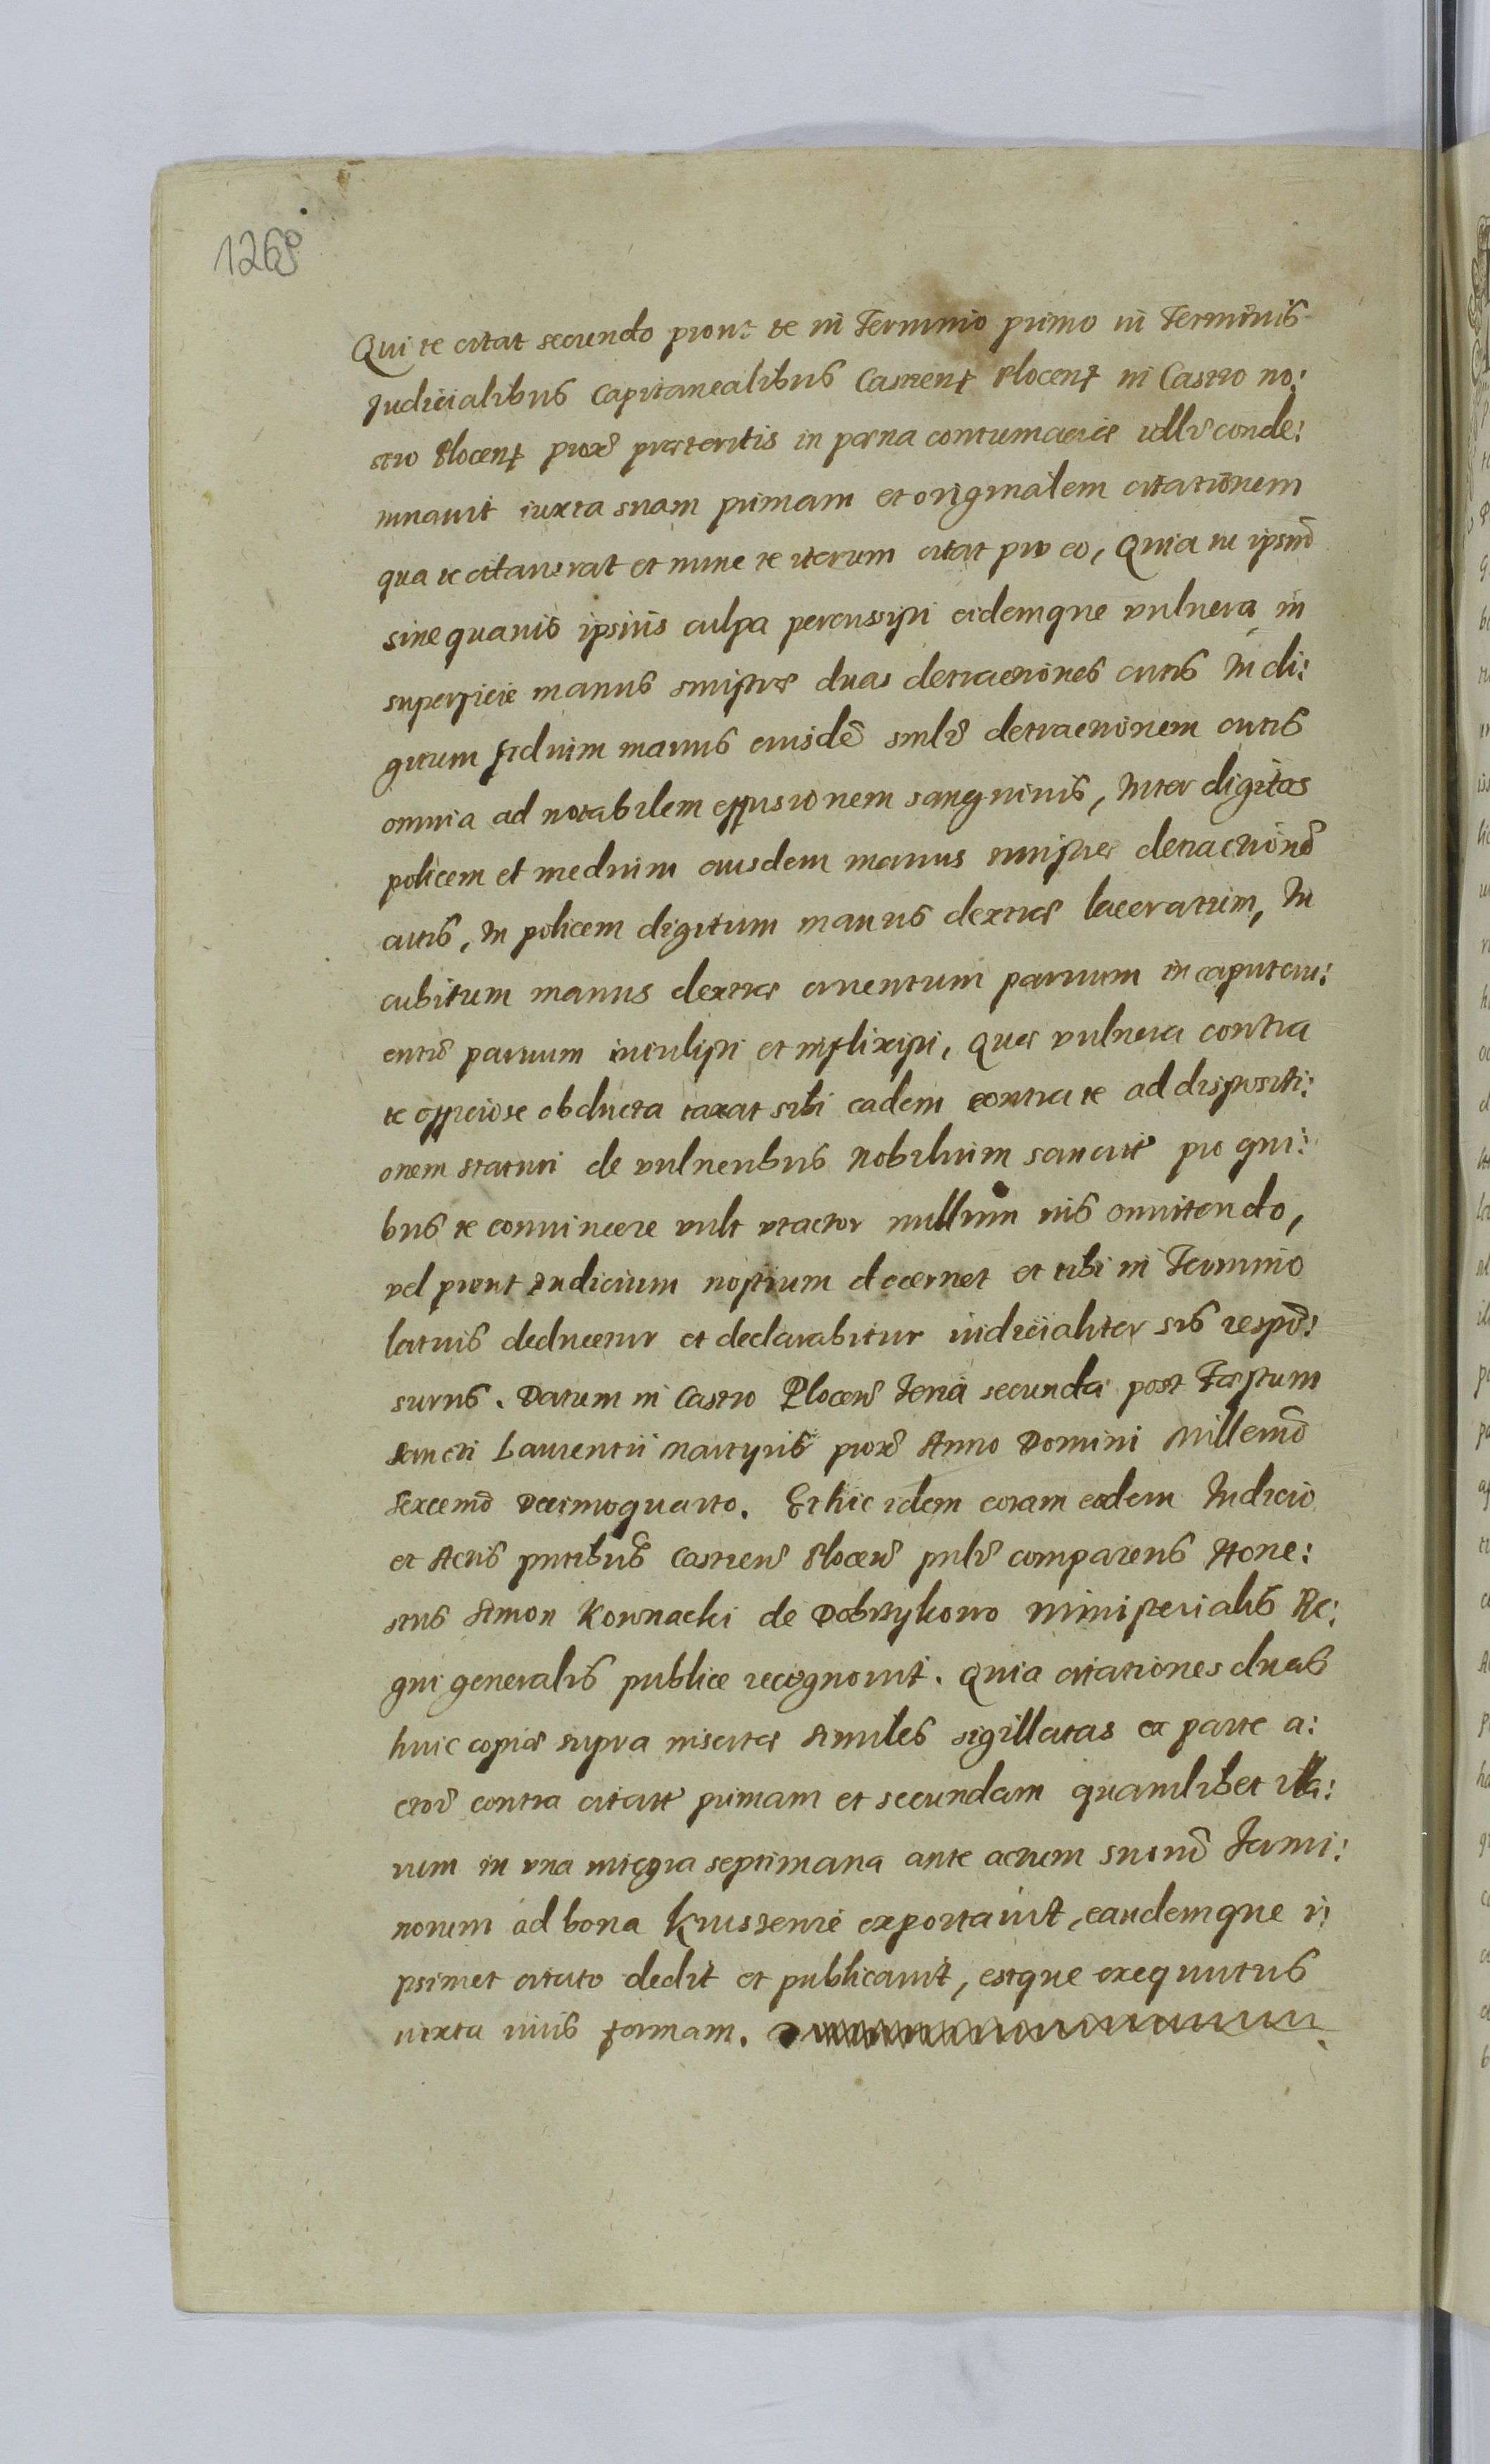 126
Qui te citat secundo prout te in Termino primo in Terminis
Judicialibus Capitanealibus Castren Plocen in Castro no:
stro Plocen prox̃ præteritis in pœna contumaciæ idlr̃ conde:
mnauit iuxta suam primam et originalem citationem
qua te citauerat et nunc te iterum citat pro eo, Quia tu ipsum̃
sine quauis ipsius culpa percussisti eidemque vulnera in
superficie manus sinistræ duas detractiones cutis In di:
gitum manus eiusdẽ similr̃ detractionem cutis
omnia ad notabilem effusionem sanguinis, Inter digitos
policem et medium eiusdem manus sinistræ detractionẽ
cutis, In policem digitum manus dextræ laceratum, In
cubitum manus dextræ cruentum paruum in caput cru:
entũ paruum intulisti et inflixisti, Quæ vulnera contra
te officiose obducta taxat sibi eadem contra te ad dispositi:
onem statuti de vulneribus Nobilium sancitĩ pro qui:
bus te conuincere vult vt actor nullum ius omittendo,
vel prout Iudicium nostrum decernet et tibi in Termino
latius deducetur et declarabitur iudicialiter sis respõ:
surus. Datum in Castro Plocen̄ Feria secunda post Fæstum
Sancti Laurentii Martyris prox̃ Anno Domini Millesmõ
Sexcemõ Decimoquarto. Et hic idem coram eodem Iudicio
et Actis pntibus Castren̄ Plocen̄ pnlr̃ comparens Hone:
stus Simon Kownacki de Dobrzykowo Ministerialis Re:
gni generalis publice recognouit. Quia citationes duas
huic copiæ supra insertæ similes sigillatas ex parte a:
ctor̃ contra citatũ primam et secundam quamlibet illa:
rum in vna integra septimana ante actum suum̃ Termi:
norum ad bona Krussenie exportauit, eandemque i:
psimet citato dedit et publicauit, estque exequutus
iuxta iuris formam.